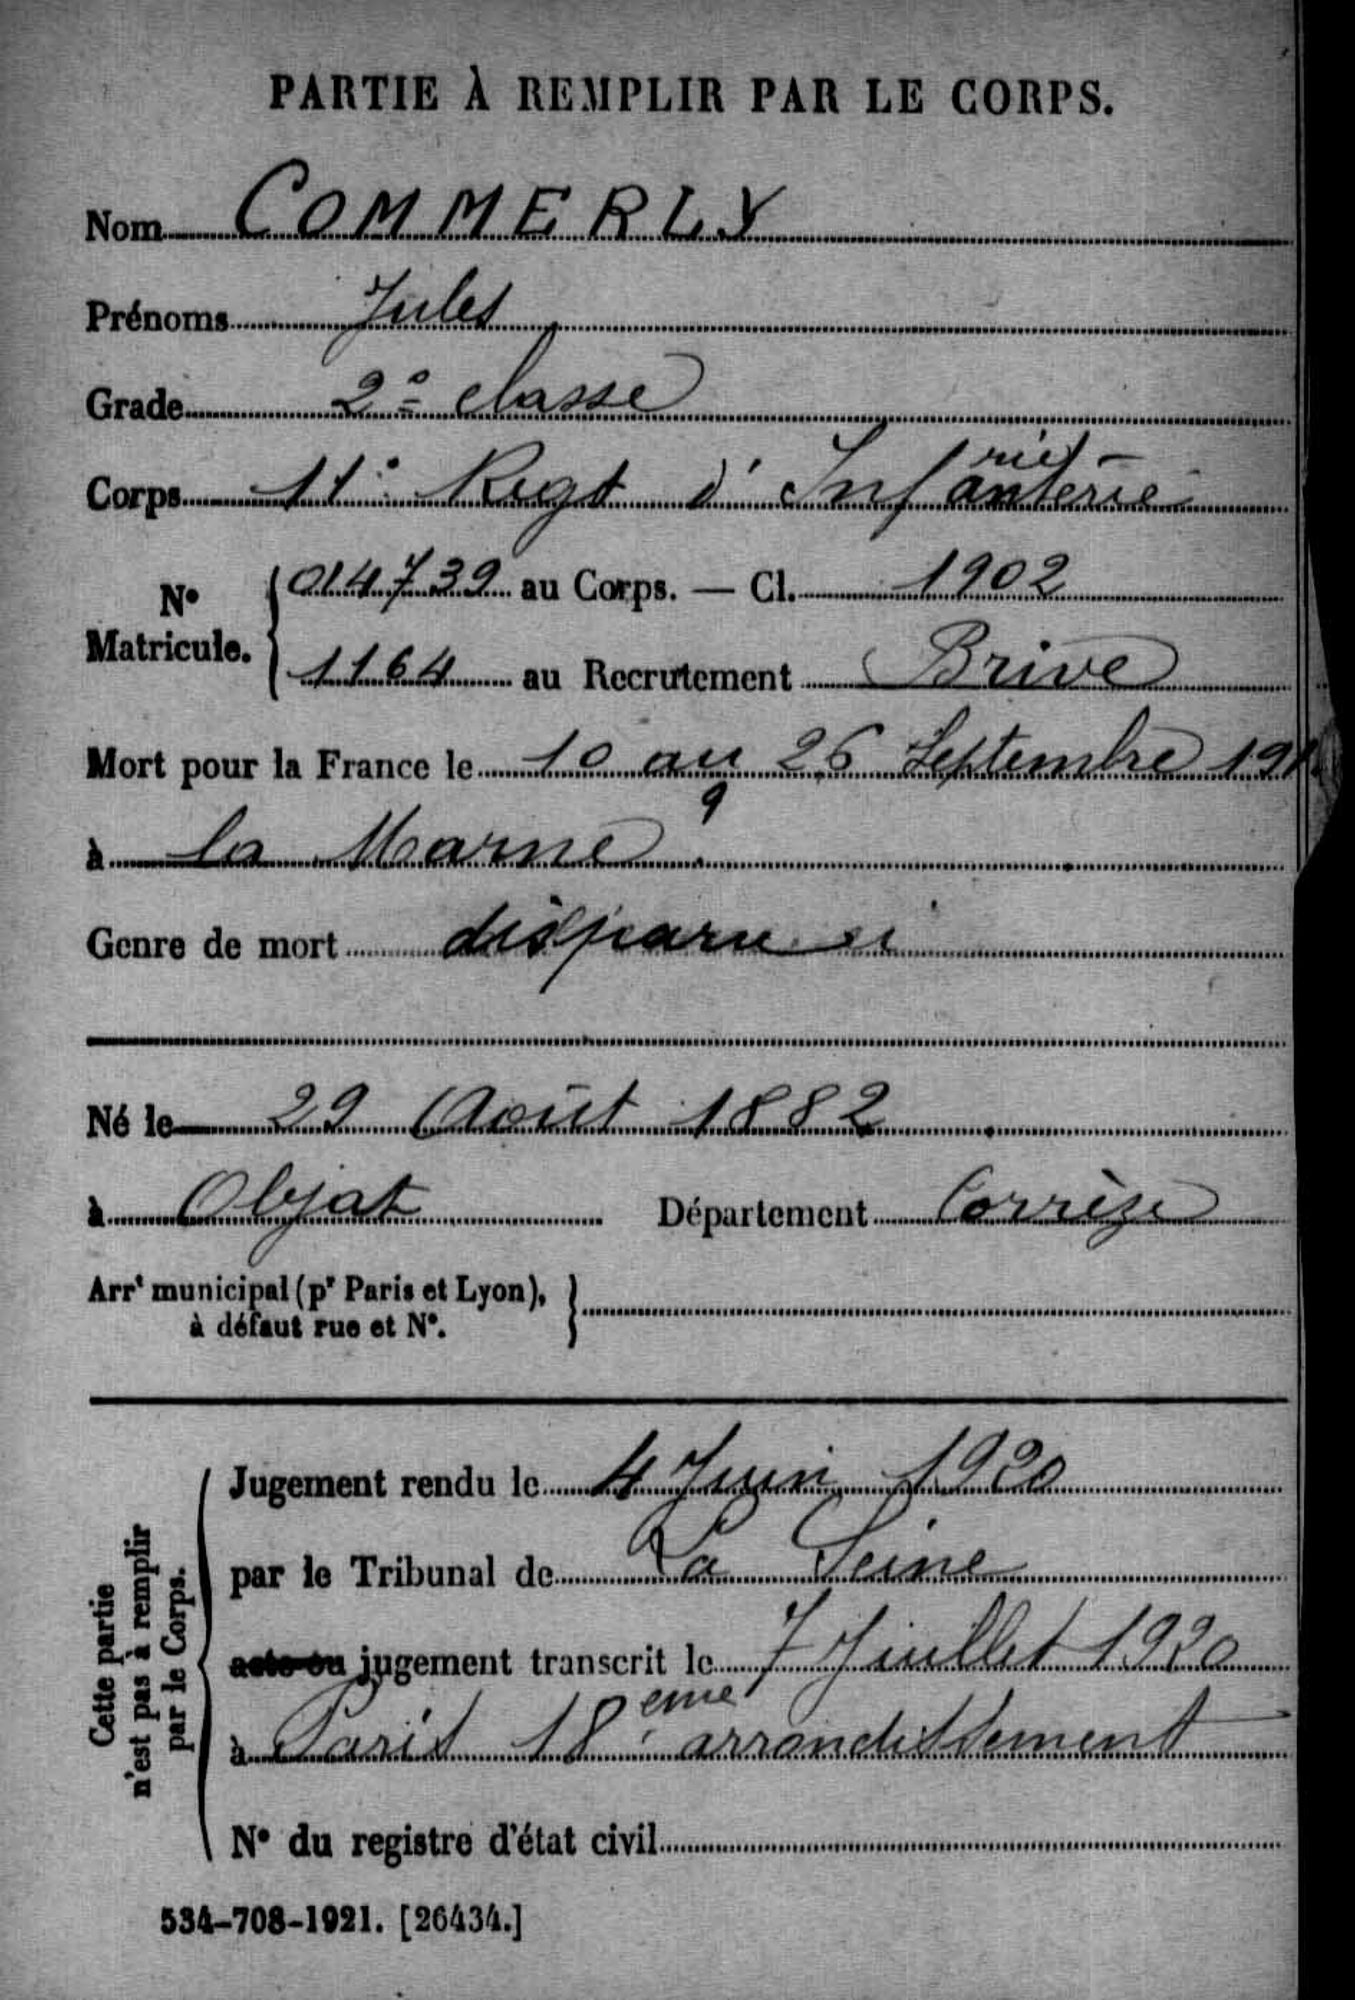 PARTIE À REMPLIR PAR LE CORPS.
Nom COMMERLY
Prénoms Jules
Grade 2e classe
Corps 11e Regt d'Infanterie
N° Matricule. 014739 au Corps. — Cl. 1902
1164 au Recrutement Brive
Mort pour la France le 10 au 26 Septembre 191
à la Marne
Genre de mort disparu
Né le 29 Août 1882
à Objat Département Corrèze
Arrt municipal (pr Paris et Lyon),
à défaut rue et N°.
Cette partie
n'est pas à remplir
par le Corps.
Jugement rendu le 4 Juin 1920
par le Tribunal de La Seine
acte ou jugement transcrit le 7 Juillet 1920
à Paris 18eme arrondissement
N° du registre d'état civil
534-708-1921. [26434.]